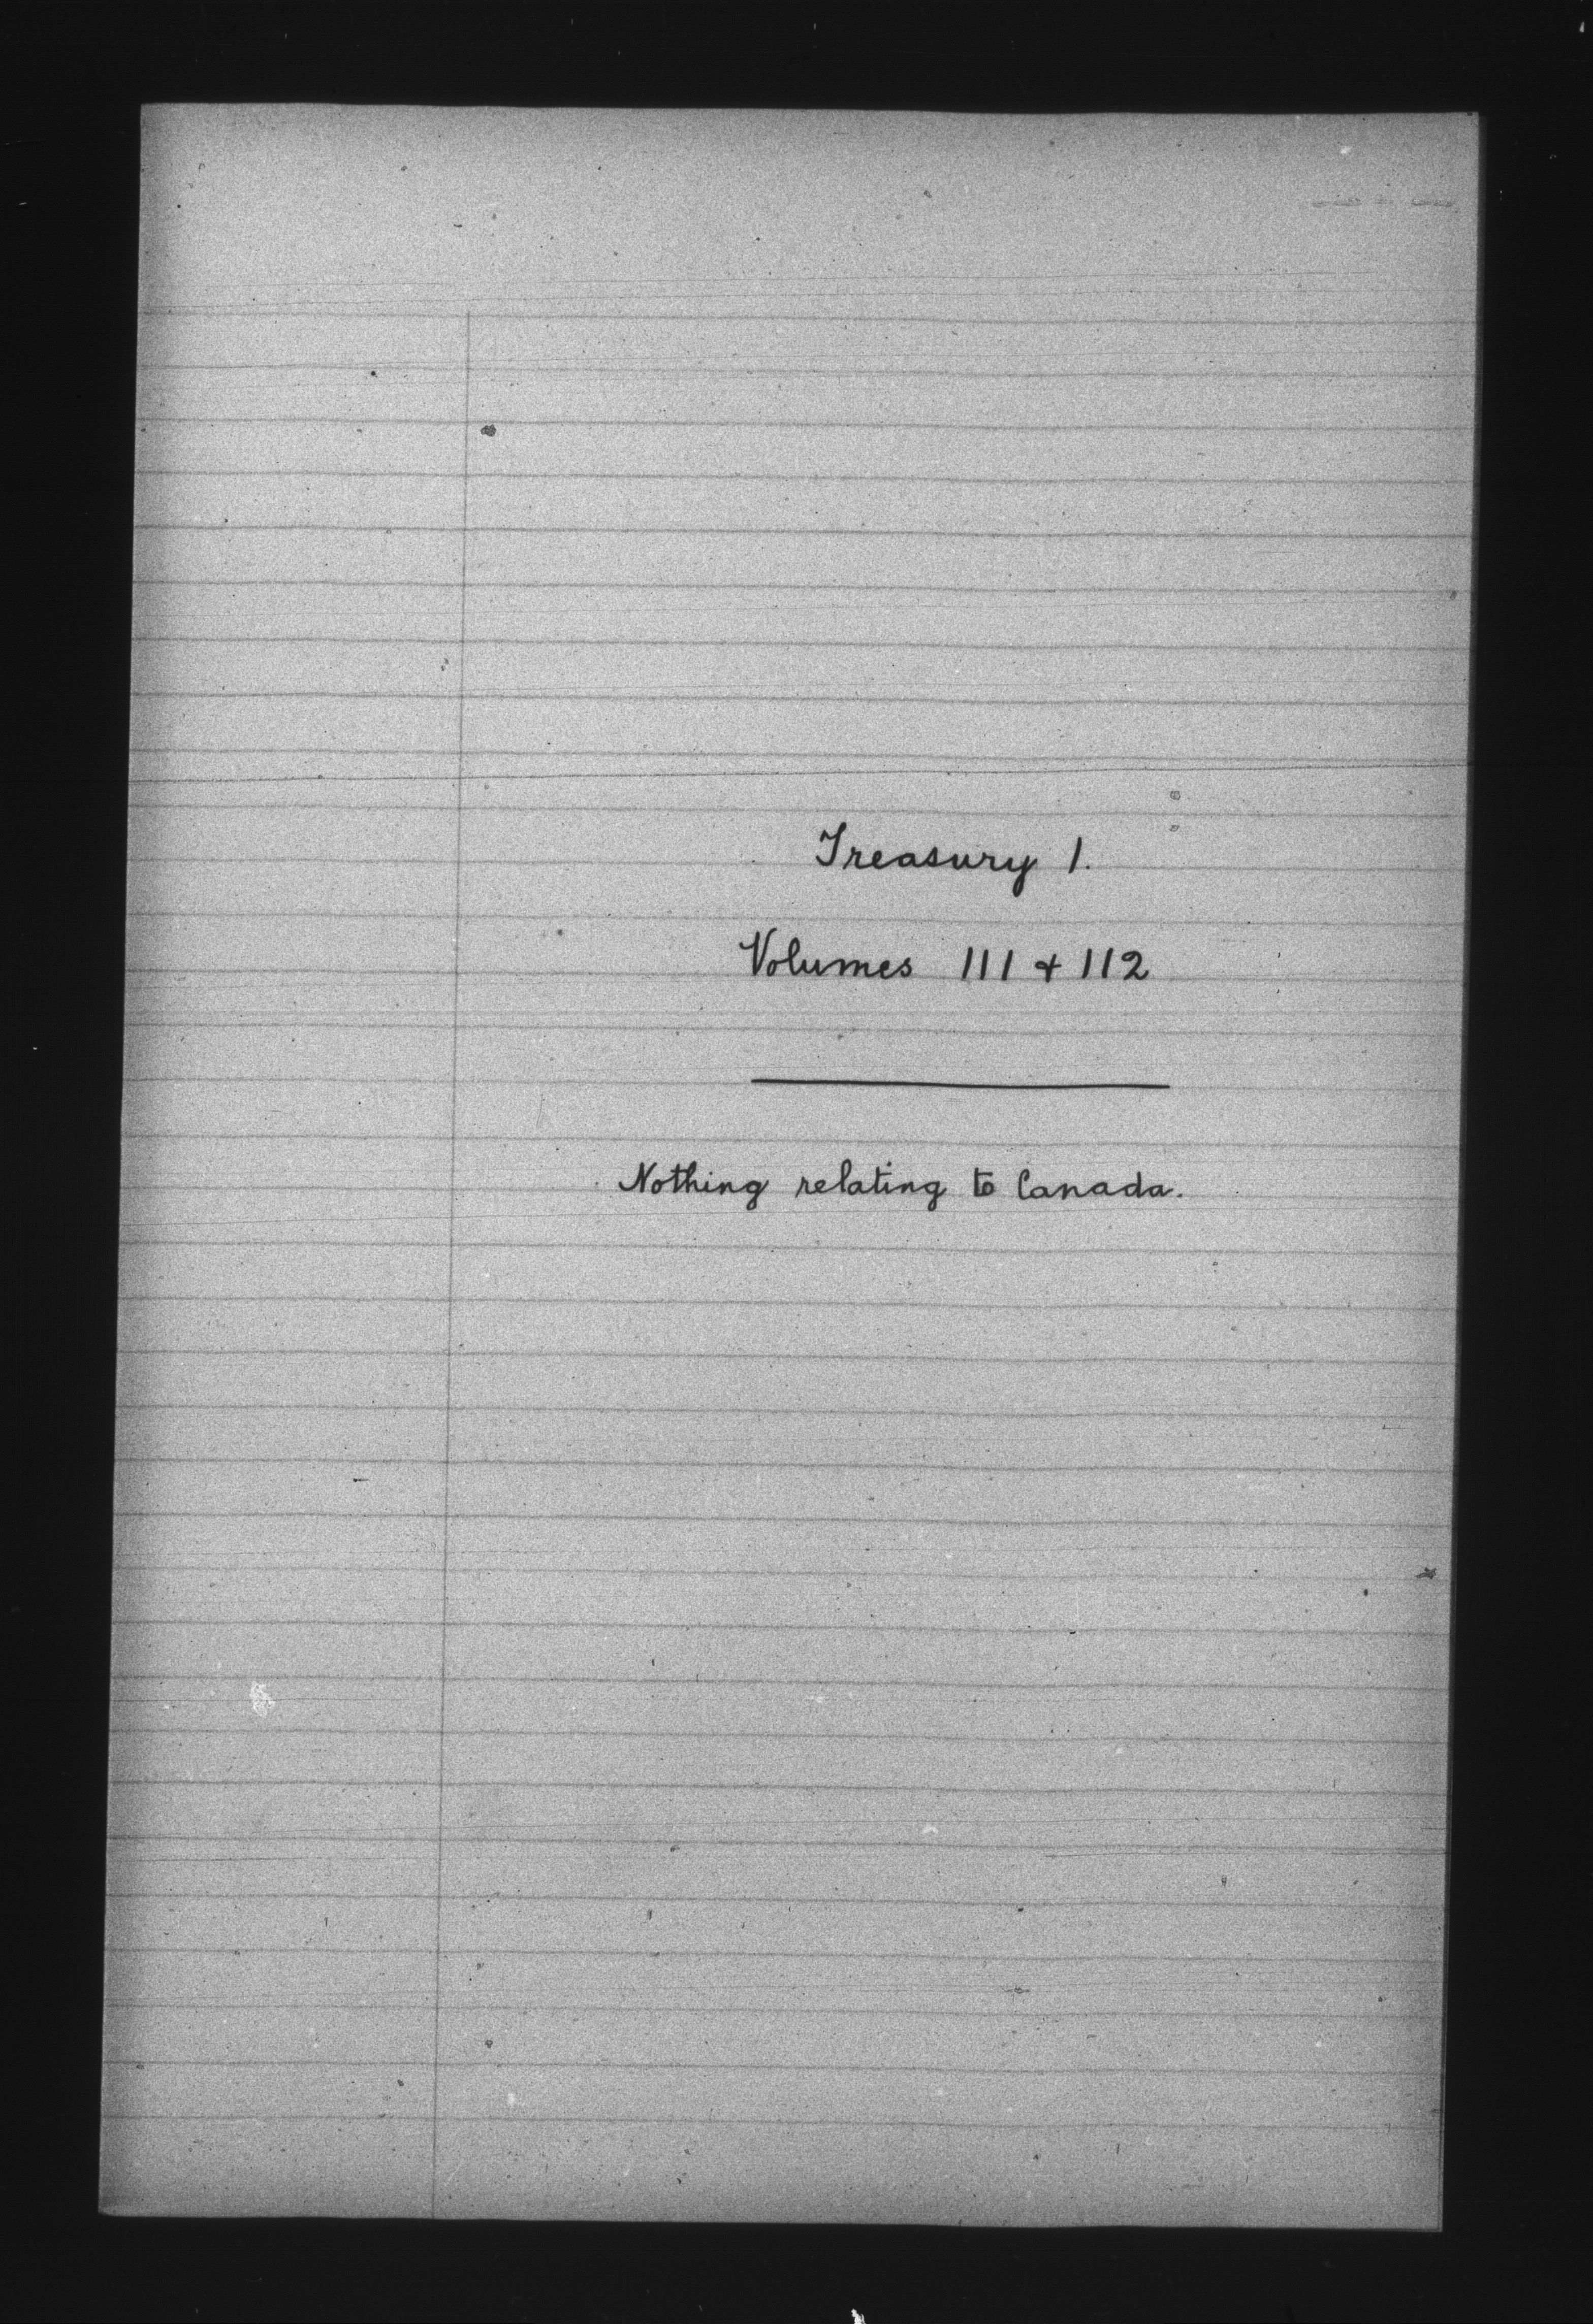 Treasury 1.
Volumes 111 & 112
Nothing relating to Canada.